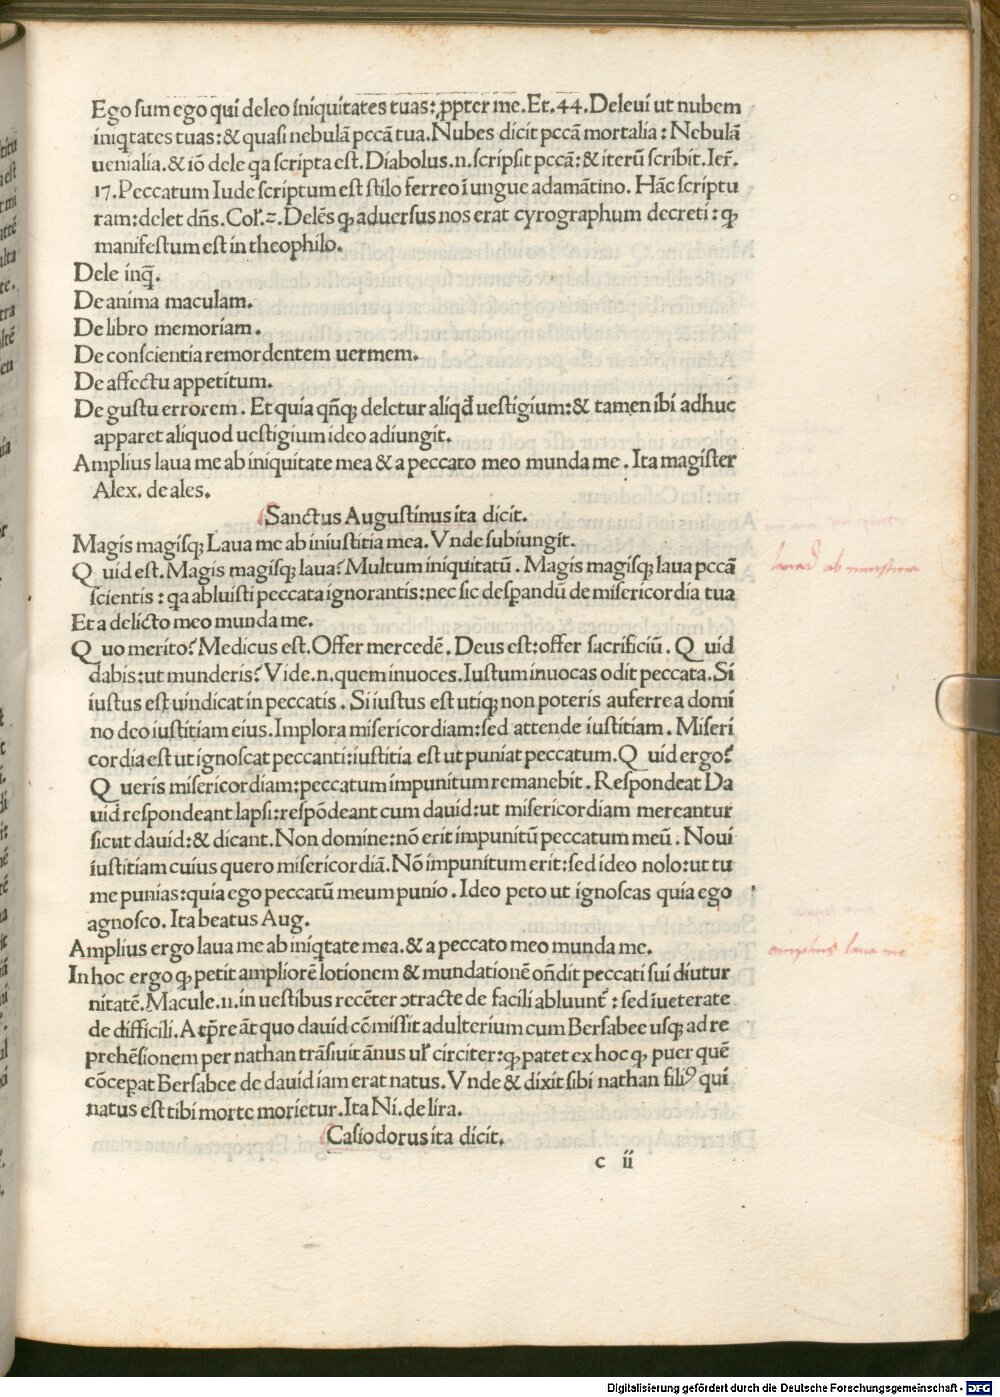 Ego sum ego qui deleo iniquitates tuas: ꝓpter me. Et. 44. Deleui ut nubem
iniqtates tuas: & quasi nebulā pccā tua. Nubes dicit pccā mortalia: Nebulā
uenialia. & iō dele qa scripta est. Diabolus .n. scripsit pccā: & iterū scribit. Ier̄.
17. Peccatum Iude scriptum est stilo ferreo ī ungue adamātino. Hāc scriptu
ram: delet dn̄s. Col̄. 2. Delēs ꝙ aduersus nos erat cyrographum decreti: ꝙ
manifestum est in theophilo.
Dele inq̄.
De anima maculam.
De libro memoriam.
De conscientia remordentem uermem.
De affectu appetitum.
De gustu errorem. Et quia qn̄qꝫ deletur aliqd̄ uestigium: & tamen ibi adhuc
apparet aliquod uestigium ideo adiungit.
Amplius laua me ab iniquitate mea & a peccato meo munda me. Ita magister
Alex. de ales.
Sanctus Augustinus ita dicit.
Magis magisqꝫ Laua me ab iniustitia mea. Vnde subiungit.
Q uid est. Magis magisqꝫ laua? Multum iniquitatū. Magis magisqꝫ laua pccā
scientis: qa abluisti peccata ignorantis: nec sic despandū de misericordia tua
Et a delicto meo munda me.
Q uo merito? Medicus est. Offer mercedē. Deus est: offer sacrificiū. Q uid
dabis: ut munderis? Vide .n. quem inuoces. Iustum inuocas odit peccata. Si
iustus est uindicat in peccatis. Si iustus est utiqꝫ non poteris auferre a domi
no deo iustitiam eius. Implora misericordiam: sed attende iustitiam. Miseri
cordia est ut ignoscat peccanti: iustitia est ut puniat peccatum. Q uid ergo?
Q ueris misericordiam: peccatum impunitum remanebit. Respondeat Da
uid respondeant lapsi: respōdeant cum dauid: ut misericordiam mereantur
sicut dauid: & dicant. Non domine: nō erit impunitū peccatum meū. Noui
iustitiam cuius quero misericordiā. Nō impunitum erit: sed ideo nolo: ut tu
me punias: quia ego peccatū meum punio. Ideo peto ut ignoscas quia ego
agnosco. Ita beatus Aug.
Amplius ergo laua me ab iniqtate mea. & a peccato meo munda me.
In hoc ergo ꝙ petit ampliorē lotionem & mundationē on̄dit peccati sui diutur
nitatē. Macule .n. in uestibus recēter ↄtracte de facili abluunt̄: sed īueterate
de difficili. A tp̄re āt quo dauid cōmissit adulterium cum Bersabee usqꝫ ad re
prehēsionem per nathan trāsiuit ānus ul̄ circiter: ꝙ patet ex hoc ꝙ puer quē
cōcepat Bersabee de dauid iam erat natus. Vnde & dixit sibi nathan filiꝰ qui
natus est tibi morte morietur. Ita Ni. de lira.
Casiodorus ita dicit.
c ii
ab
amplius laua me
Digitalisierung gefördert durch die Deutsche Forschungsgemeinschaft - DFG